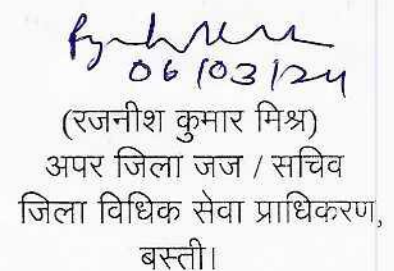 06/03/24
(रजनीश कुमार मिश्र)
अपर जिला जज / सचिव
जिला विधिक सेवा प्राधिकरण,
बस्ती।